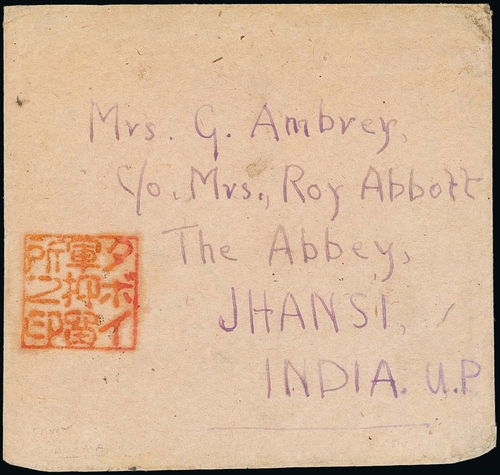 Mrs. G. Ambrey,
C/o. Mrs., Roy Abbott
The Abbey,
JHANSI,
INDIA. U.P
タボイ
軍抑留
所之印